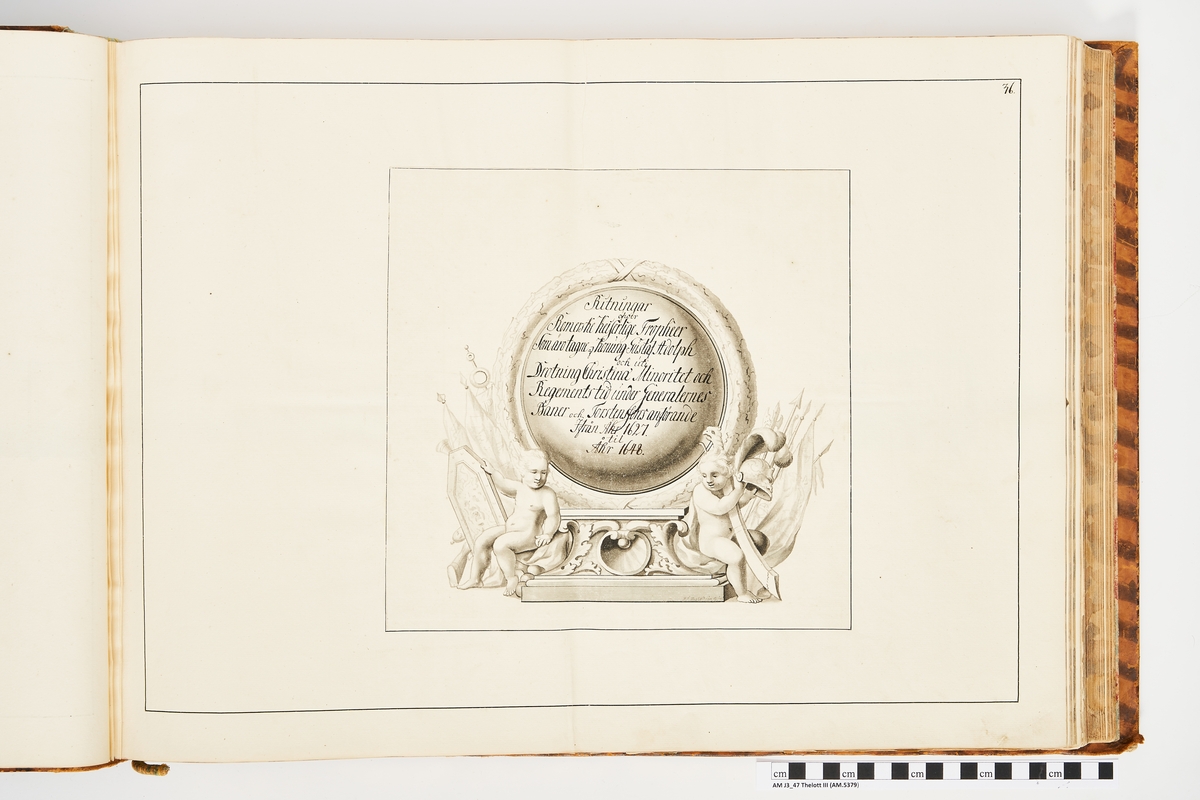 36.
Ritningar
öfver
Romerske keiserlige Tropheer
Som äro tagne af Konung Gustaf Adolph
och uti
Drotning Christina Minoritet och
Regements tid under Generalernes
Baner och Torstensons anförande
Ifrån Åhr 1627.
til
Åhr 1648.
cm cm cm cm cm
AM J3_47 Thelott III (AM.5379)